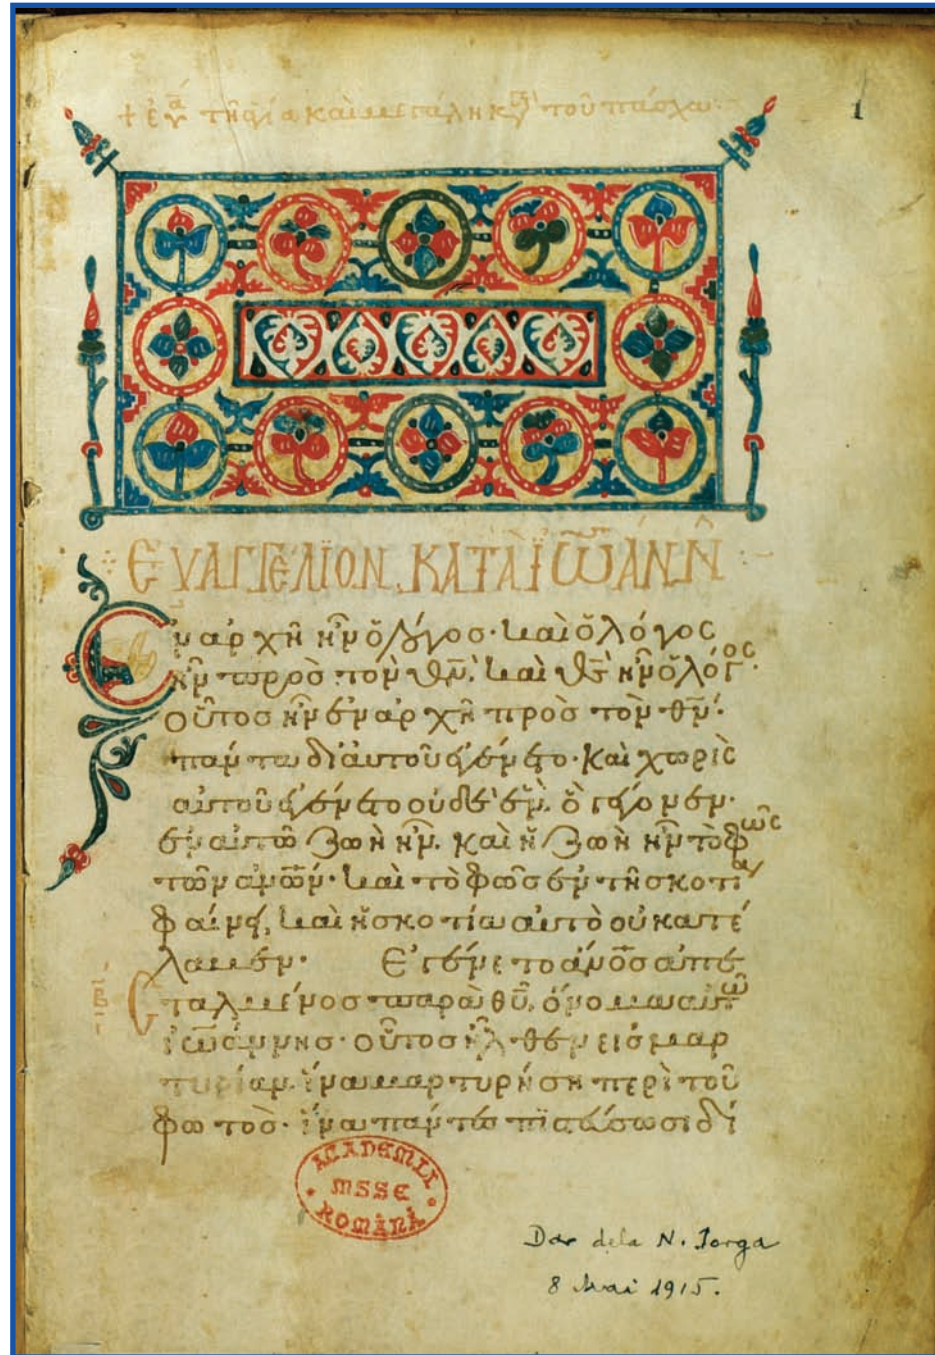 1
+ εὐα τῇ ἁγία καὶ μεγάλη κυ τοῦ πάσχα:
ΕΥΑΓΓΕΛΙΟΝ ΚΑΤΑ ἸΩΑΝΝ
Ἐν ἀρχῆ ἦν ὁ λόγος· καὶ ὁ λόγος
ἦν πρὸς τὸν θν̄· καὶ θς̄ ἦν ὁ λόγος·
οὗτος ἦν ἐν ἀρχῆ πρὸς τὸν θν̄·
πάντα δι' αὐτοῦ ἐγένετο· καὶ χωρὶς
αὐτοῦ ἐγένετο οὐδὲ ἕν. ὃ γέγονεν·
ἐν αὐτῶ ζωὴ ἦν. καὶ ἡ ζωὴ ἦν τὸ φῶς
τῶν ἀνων̄· καὶ τὸ φῶς ἐν τῆ σκοτία
φαίνει, καὶ ἡ σκοτία αὐτὸ οὐ κατέ
λαβεν· Ἐγένετο ἄνος̄ ἀπε
σταλμένος παρὰ θῡ, ὄνομα αὐτῶ
ἰωάννης· οὗτος ἦλθεν εἰς μαρ
τυρίαν. ἵνα μαρτυρήση περὶ τοῦ
φωτὸς· ἵνα πάντες πιστεύσωσι δι
ACADEMIA
MSSE
ROMÂNĂ
Dar dela N. Iorga
8 Mai 1915.